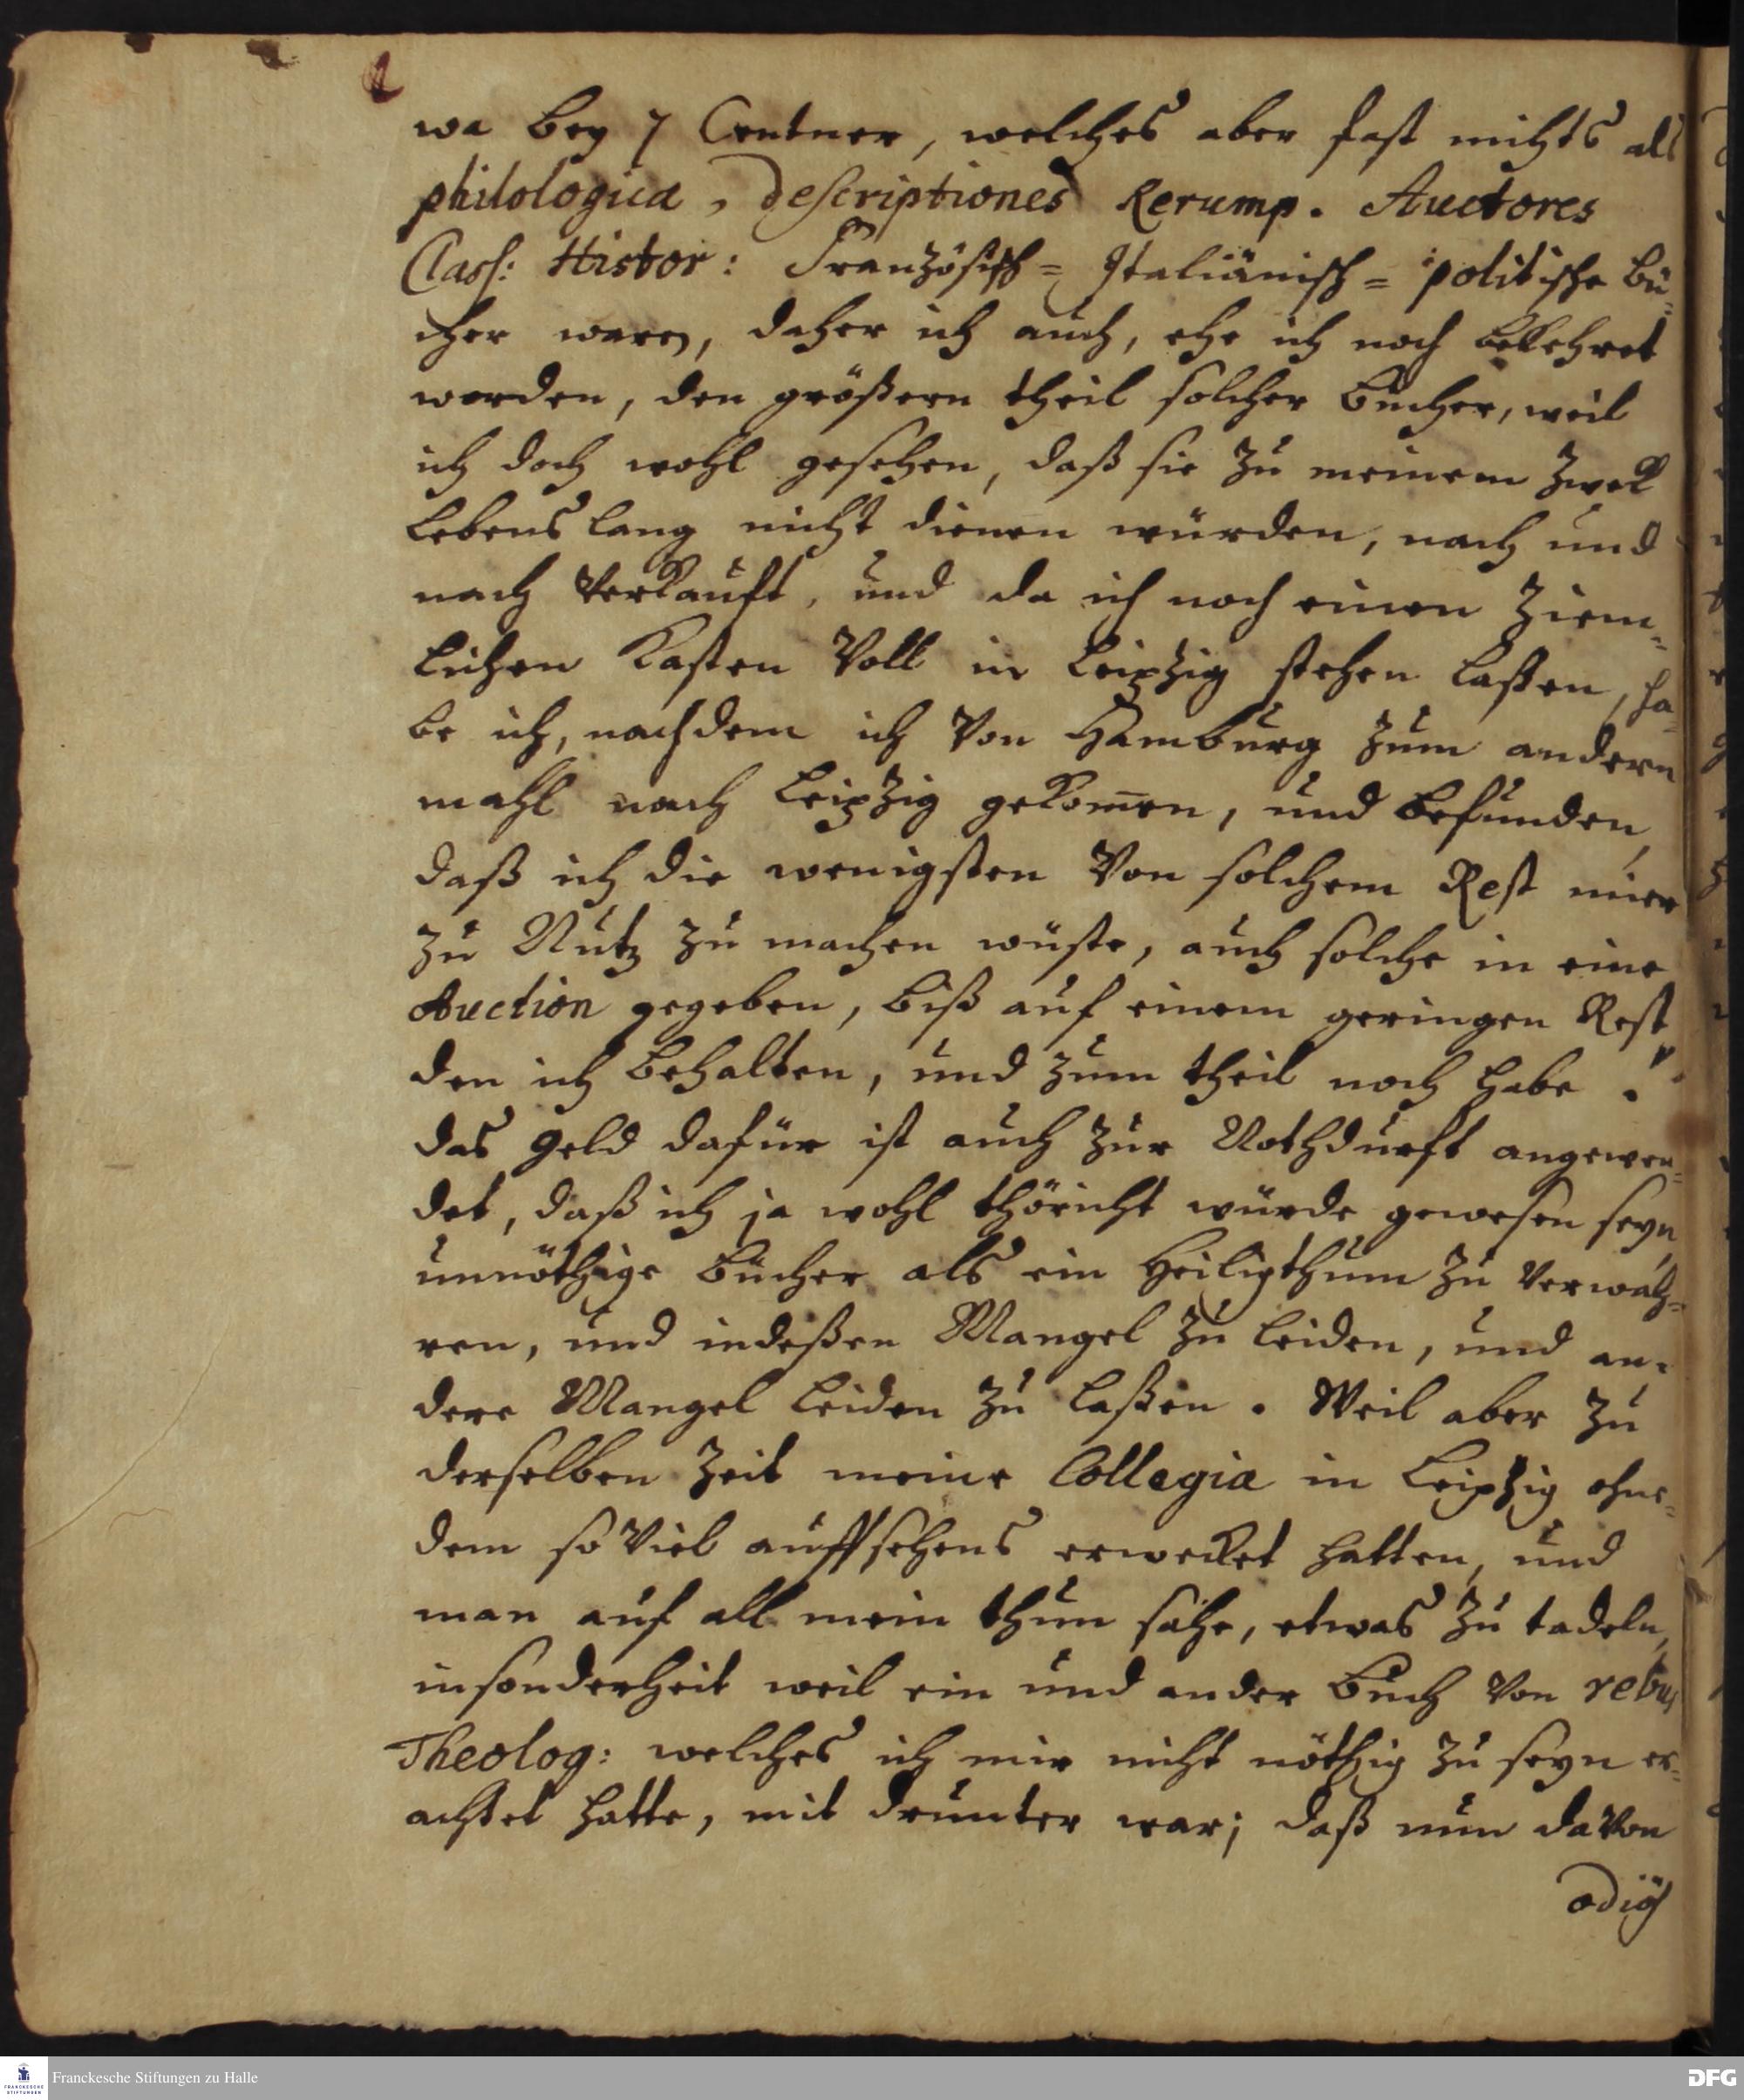 wa bey 7 Centner, welches aber fast nichts als
philologica, descriptiones Rerump. Auctores
Class: Histor: Französisch= Italiänisch= politische Bü=
cher waren, daher ich auch, ehe ich noch bekehret
worden, den größern theil solcher Bücher, weil
ich doch wohl gesehen, daß sie zu meinem Zweck
Lebens lang nicht dienen würden, nach und
nach verkauft, und da ich noch einen Ziem=
lichen Kasten voll in Leipzig stehen laßen, ha=
be ich, nachdem ich von Hamburg zum andern
mahl nach Leipzig gekom̄en, und befunden,
daß ich die wenigsten von solchem Rest mir
zu Nutz zu machen wüste, auch solche in eine
Auction gegeben, biß auf einem geringen Rest,
den ich behalten, und zum theil noch habe.
das Geld dafür ist auch zur Nothdurft angewen=
det, daß ich ja wohl thöricht würde gewesen seyn
unnöthige Bücher als ein Heiligthum zu verwah=
ren, und indeßen Mangel zu leiden, und an=
dere Mangel leiden zu laßen. Weil aber zu
derselben Zeit meine Collegia in Leipzig ohne=
dem so viel auffsehens erwecket hatten, und
man auf all mein thun sahe, etwas zu tadeln,
insonderheit weil ein und ander Buch von rebus
Theolog: welches ich mir nicht nöthig zu seyn er=
achtet hatte, mit drunter war; daß nun davon
odiös
Franckesche Stiftungen zu Halle
FRANCKESCHE
STIFTUNGEN
DFG